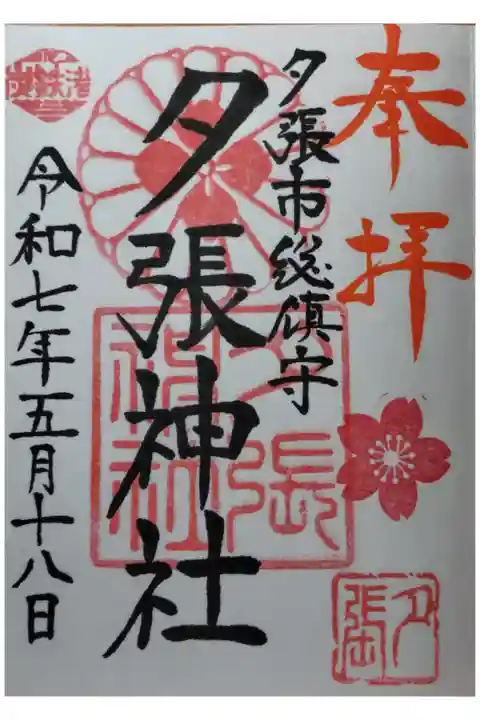 奉拝
夕張市総鎮守
夕張神社
令和七年五月十八日
夕張神社
夕張